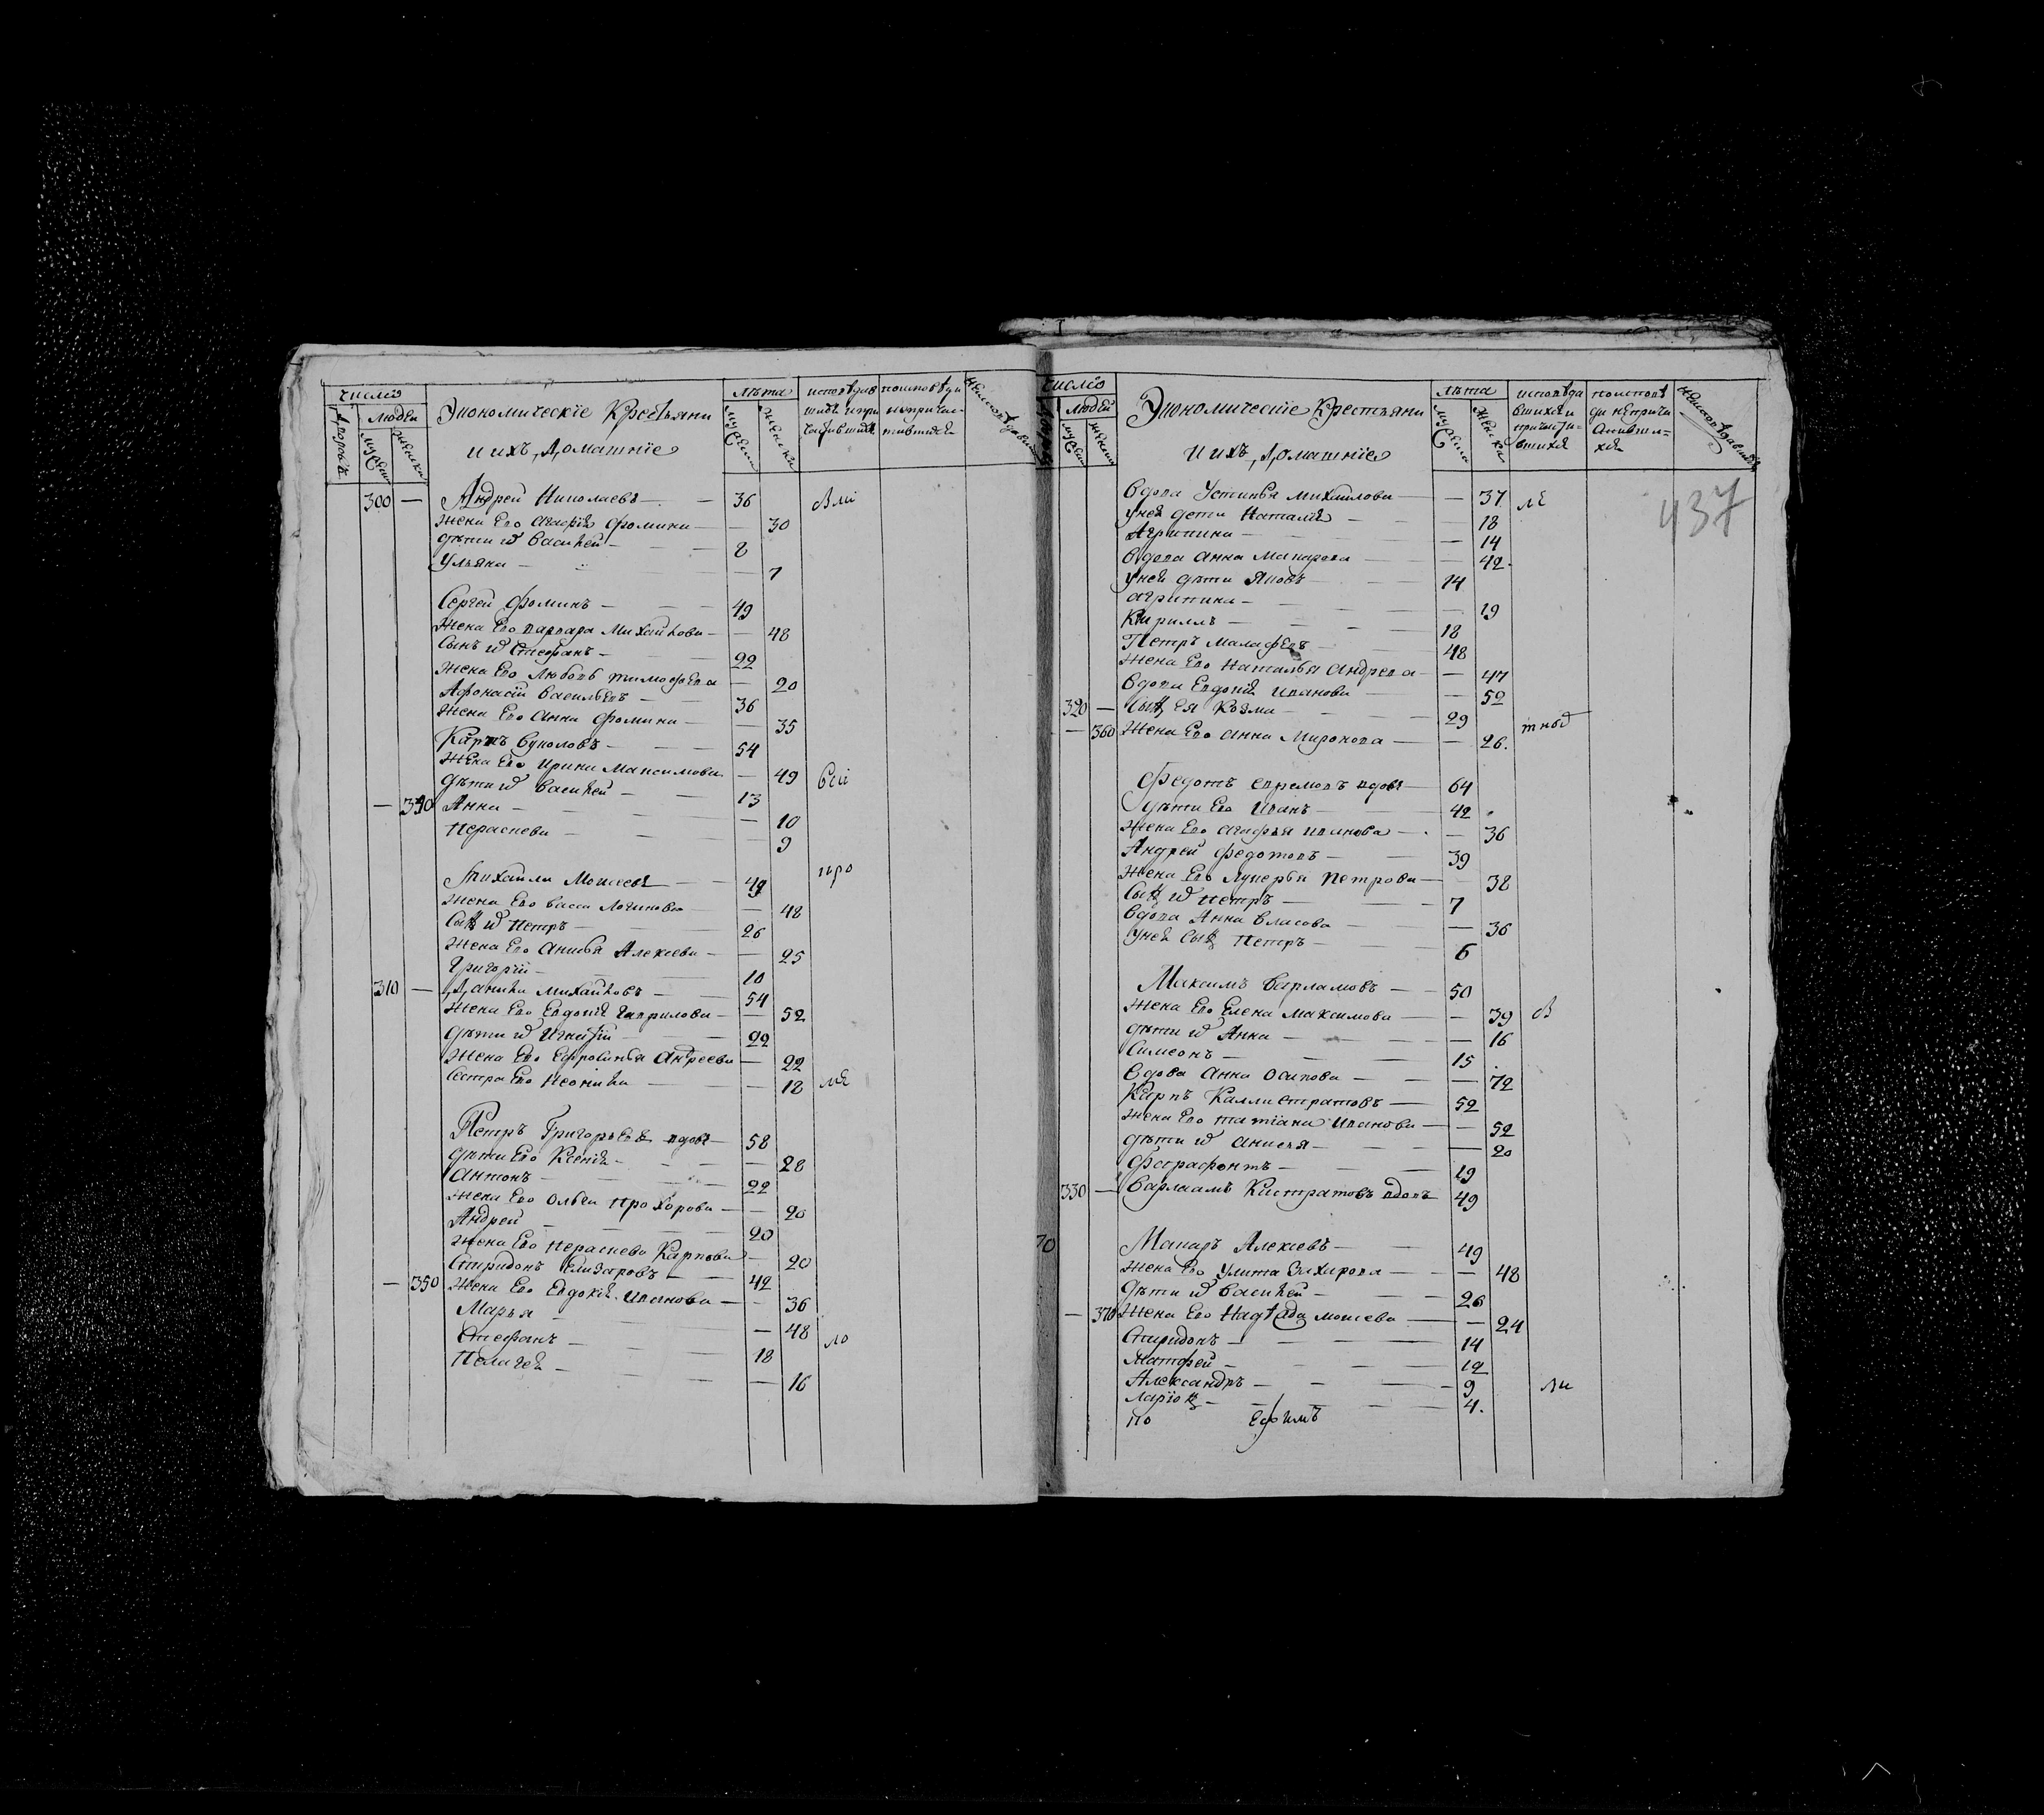 число
Дворовъ
людей
мужеск
женска
Экономическіе Крестьяни
и ихъ, домашніе
лѣта
мужеска
женска
300 — Андрей Николаевъ — — 36
Жена Его Агафія Фомина — — 30
дѣти их Василей — — 8
Ульяна — — 7
Сергей Фоминъ — — 49
Жена Его Варвара Михайлова — — 48
Сынъ их Стефанъ — 22
Жена Его Любовь Тимофеева — 20
Афонасій Васильевъ — 36
Жена Его Анна Фомина — — 35
Карпъ — — 54
Жена Его Ирина Максимова — 49
дѣти их Василей — 13
— 340 Анна — — 10
Параскева — — 9
Михаила Моисеевъ — — 49
Жена Его Васса Логинова — 48
Сынъ их Петръ — 26
Жена Его Анисья Алексеева — — 25
Григорій — — 10
310 — Данила Михайловъ — 54
Жена Его Евдокія Гаврилова — — 52
дѣти их Игнатій — 22
Жена Его Ефросинья Андреева — 22
Сестра Его Неонила — — 18
Петръ Григорьевъ вдовъ — 58
дѣти Его Ксенія — — 28
Антонъ — — 22
Жена Его Ольга Прохорова — — 20
Андрей — — 20
Жена Его Параскева Карпова — 20
Спиридонъ — 42
— 350 Жена Его Евдокія Иванова — — 36
Марья — — 48
Стефанъ — — 18
Пелагея — — 16
число
людей
Экономическіе Крестьяни
и ихъ, домашніе
лѣта
мужеска
женска
437
вдова Устинья Михайлова — — 37
у ней дети Наталія — — 18
Агрипина — — 14
вдова Анна Макарова — — 42
у ней дѣти Яковъ — 14
Агрипина — — 19
Кирилъ — 18
Петръ Малафеевъ — 48
Жена Его Наталья Андреева — — 47
вдова Евдокія Иванова — — 50
320 — Сынъ Ея Козма — 29
— 360 Жена Его Анна Миронова — — 26
Федотъ Ефремовъ вдовъ — 64
дѣти Его Иванъ — 42
Жена Его Агафья Иванова — — 36
Андрей Федотовъ — 39
Жена Его Лукерья Петрова — 38
Сынъ их Петръ — 7
вдова Анна Власова — — 36
у ней Сынъ Петръ — 6
Максимъ Варламовъ — 50
Жена Его Елена Максимова — — 39
дѣти их Анна — — 16
Симеонъ — 15
Вдова Анна Осипова — — 72
Карпъ Каллистратовъ — 52
Жена Его Татіана Иванова — — 52
дѣти их Анисья — — 20
19
330 — Варлаамъ Кистратовъ вдовъ 49
70 Макаръ Алексевъ — 49
Жена Его Улита Захарова — — 48
дѣти их Василей — 26
— 370 Жена Его Надежда Моисеева — — 24
Спиридонъ — 14
Матфей — 12
Александръ — 9
Ларіонъ — 4.
по Ефимъ